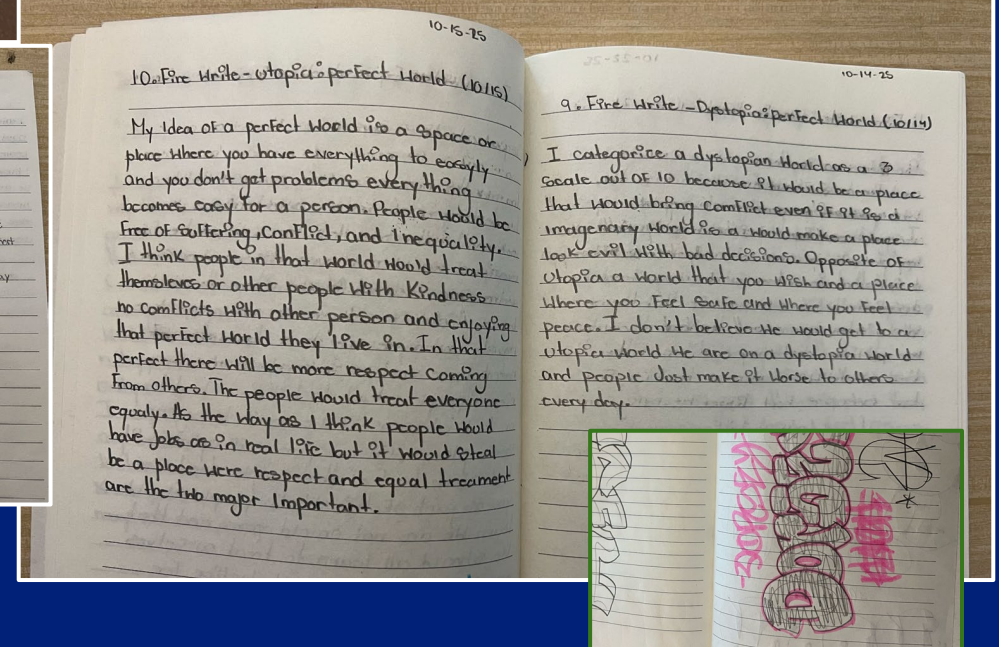 10-15-25
10. Fire Write - utopia: perfect World (10/15)
My Idea of a perfect World is a space or
place where you have everything to easyly
and you don't got problems everything
becomes easy for a person. People would be
free of suffering, conflict, and inequiality.
I think people in that world would treat
themsleves or other people with Kindness
no comflicts with other person and enjoying
that perfect world they live in. In that
perfect there will be more respect coming
from others. The people would treat everyone
equaly. As the way as I think people would
have Jobs as in real life but it would steal
be a place were respect and equal treament
are the two major Important.
10-14-25
9. Fire Write - Dystopia: perfect World (10/14)
I categorice a dystopian World as a 8
scale out of 10 because it would be a place
that would bring comflict even if it is a
Imagenary World is a would make a place
look evil with bad decisions. Opposite of
utopia a world that you wish and a place
where you feel safe and where you feel
peace. I don't believe we would get to a
utopia world we are on a dystopia world
and people Just make it worse to others
every day.